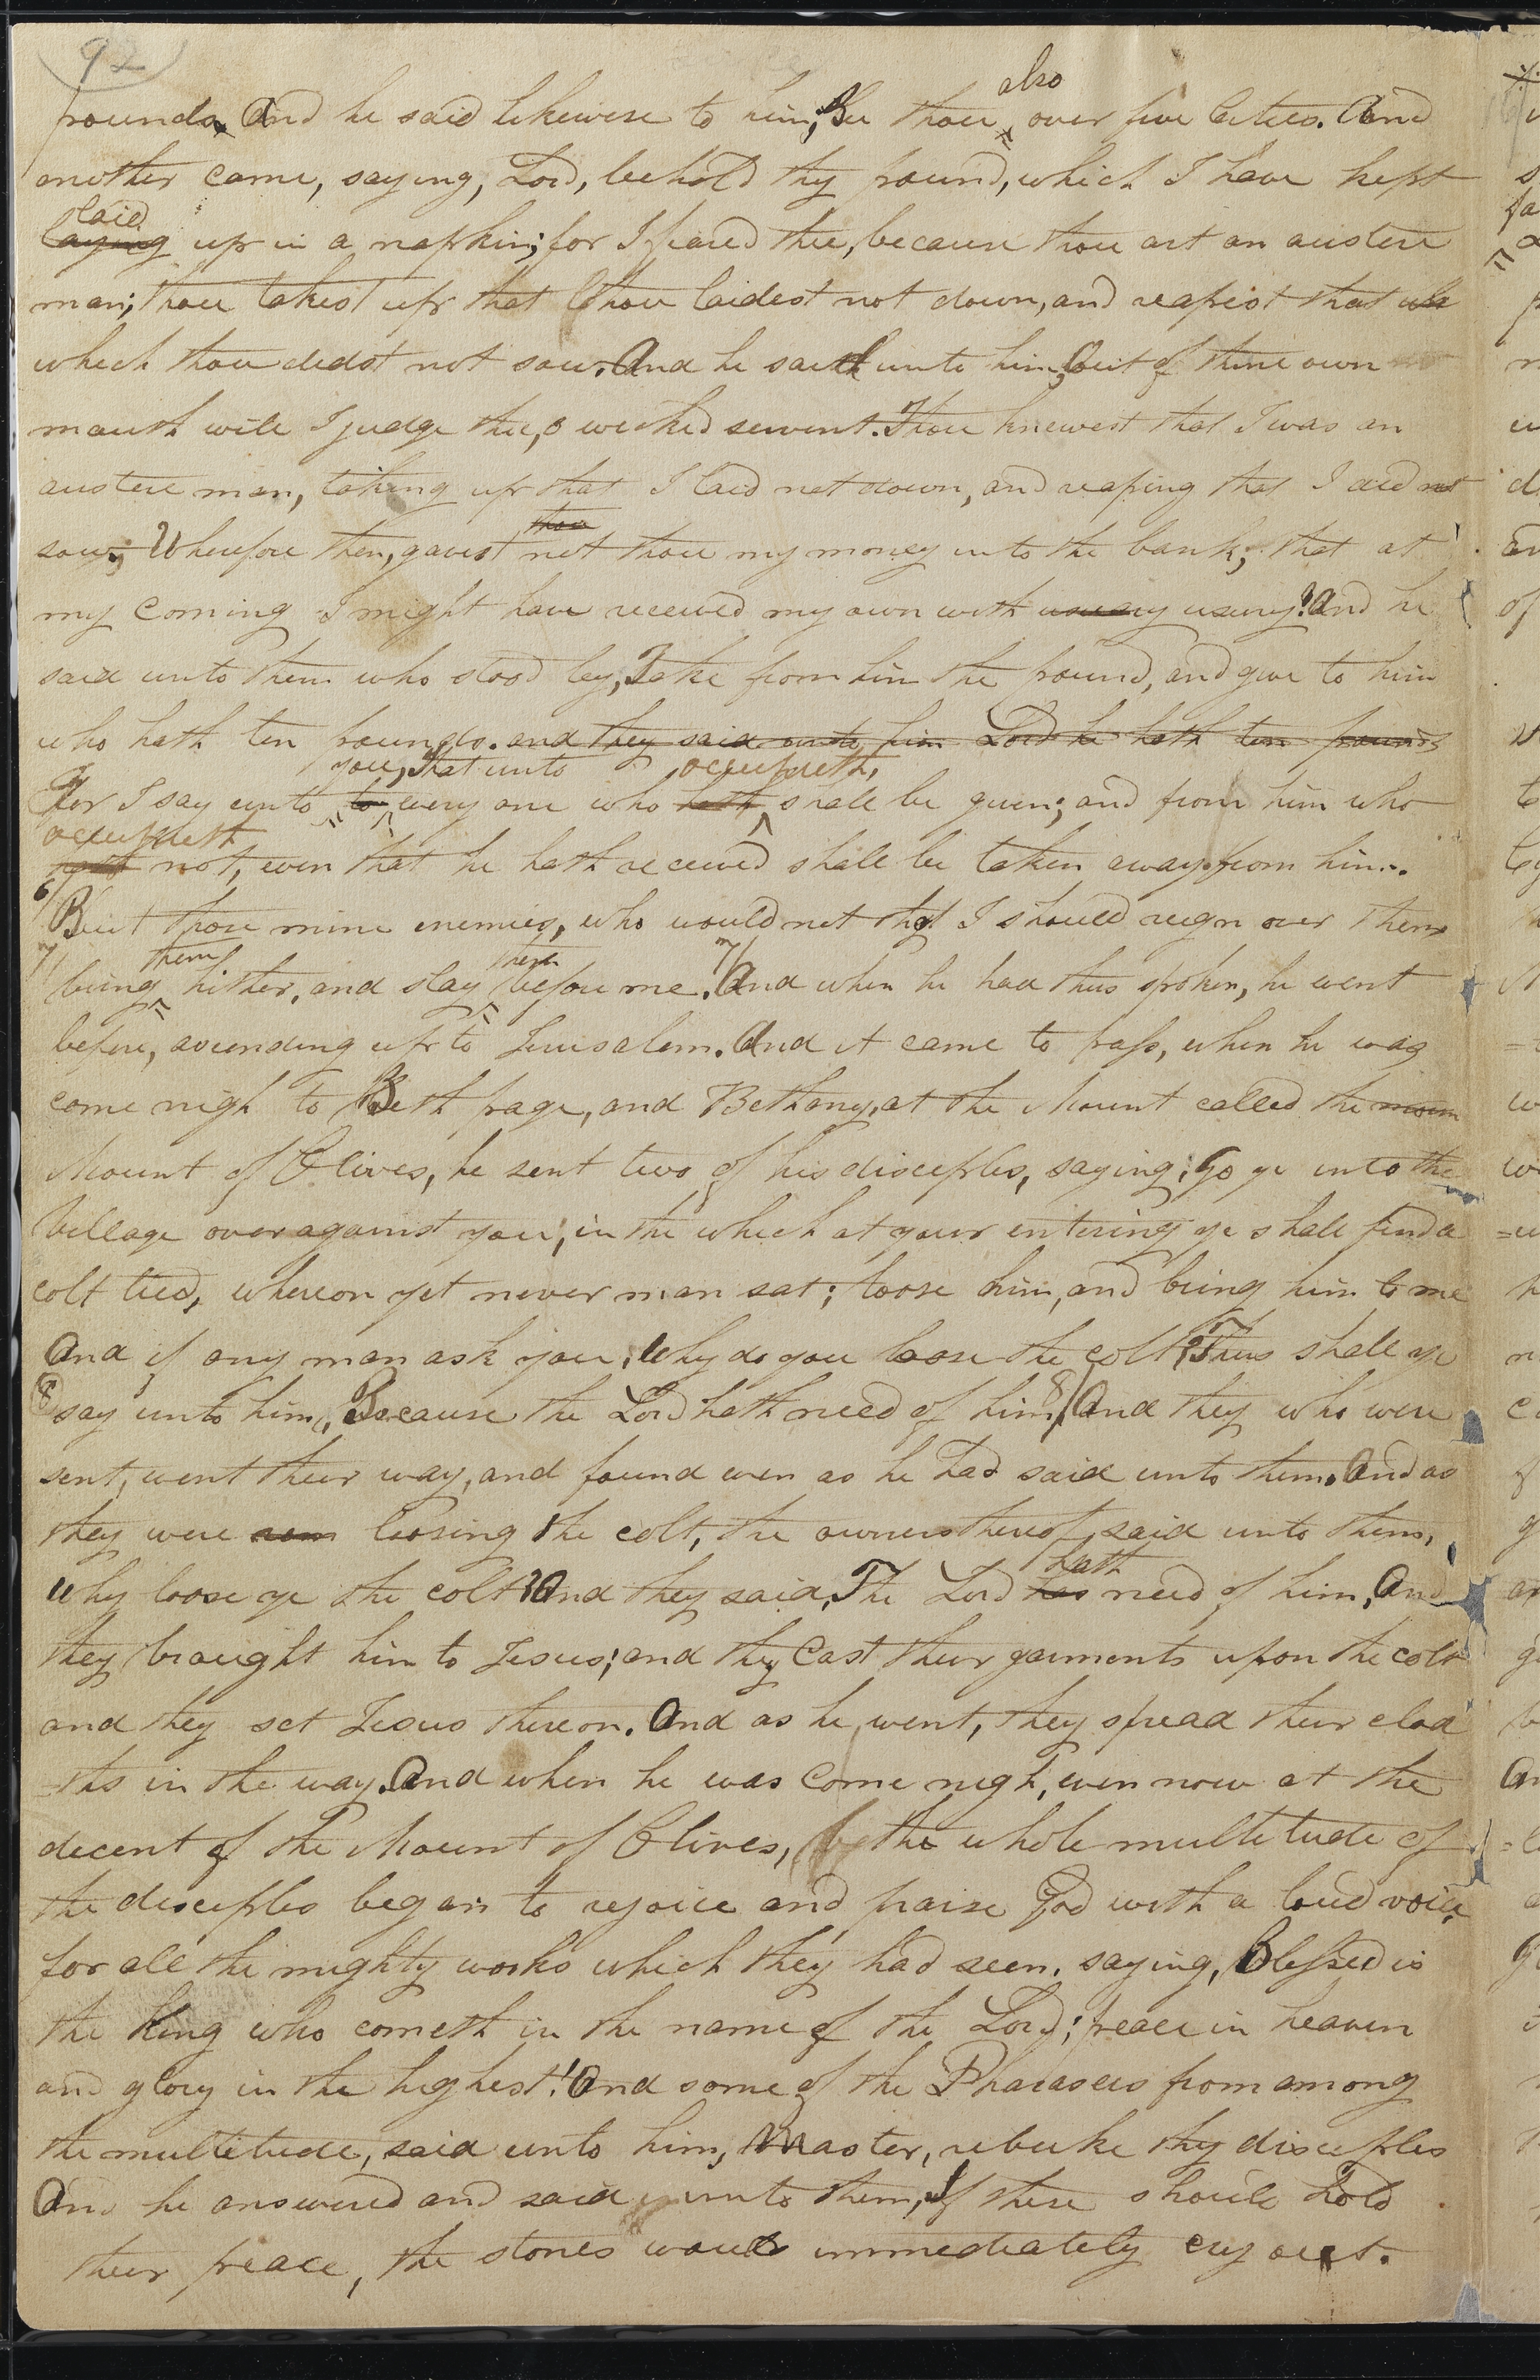 92
also
pounds. And he said likewise to him, Be thou over five Cities. And
another came, saying, Lord, behold thy pound, which I have kept
laid
laying up in a napkin; for I feared thee, because thou art an austere
man; thou takest up that thou laidest not down, and reapest that wh
which thou didst not sow. And he saith unto him, Out of thine own
mouth will I judge thee, O wicked servent. Thou knewest that I was an
austere man, taking up that I laid not down, and reaping that I did not
thou
sow; Wherefore then, gavest not thou my money into the bank; that at
my coming I might have received my own with usuary usury? And he
said unto them who stood by, Take from him the pound, and give to him
who hath ten pounds. and they said unto him Lord he hath ten pounds
you, that unto occupieth,
For I say unto to every one who hath shall be given; and from him who
occupieth
hath not, even that he hath received shall be taken away from him.
6/
But those mine enemies, who would not that I should reign over them
7/ them them 7/
bring hither, and slay before me. And when he had thus spoken, he went
before, ascending up to Jerusalem. And it came to pass, when he was
come nigh to Beth page, and Bethany, at the Mount called the moun
Mount of Olives, he sent two of his disciples, saying; Go ye into the
Village over against you; in the which at your entering ye shall find a
colt tied, whereon yet never man sat; loose him, and bring him to me
And if any man ask you, Why do you loose the colt? Thus shall ye
8 8/
say unto him, Because the Lord hath need of him. And they who were
sent, went their way, and found even as he had said unto them. And as
they were loosing the colt, the owners thereof, said unto them,
hath
Why loose ye the colt? And they said, The Lord has need of him. And
they brought him to Jesus; and they Cast their garments upon the colt
and they set Jesus thereon. And as he went, they spread their cloa
=ths in the way. And when he was Come nigh, even now at the
decent of the Mount of Olives, the whole multitude of
the disciples began to rejoice and praise God with a loud voice,
for all the mighty works which they had seen. saying, Blessed is
the King who cometh in the name of the Lord; peace in heaven
and glory in the highest! And some of the Pharasees from among
the multitude, said unto him, Master, rebuke thy disciples
And he answered and said unto them, If these should hold
their peace, the stones would immediately cry out.